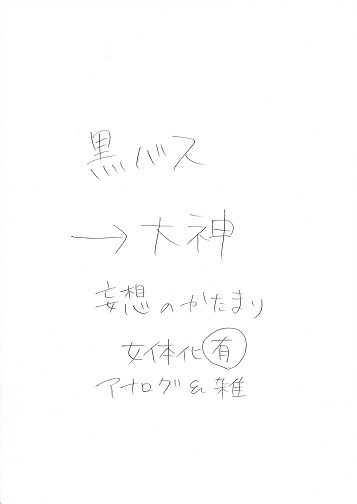 黒バス
→大神
妄想のかたまり
女体化有
アナログ&雑